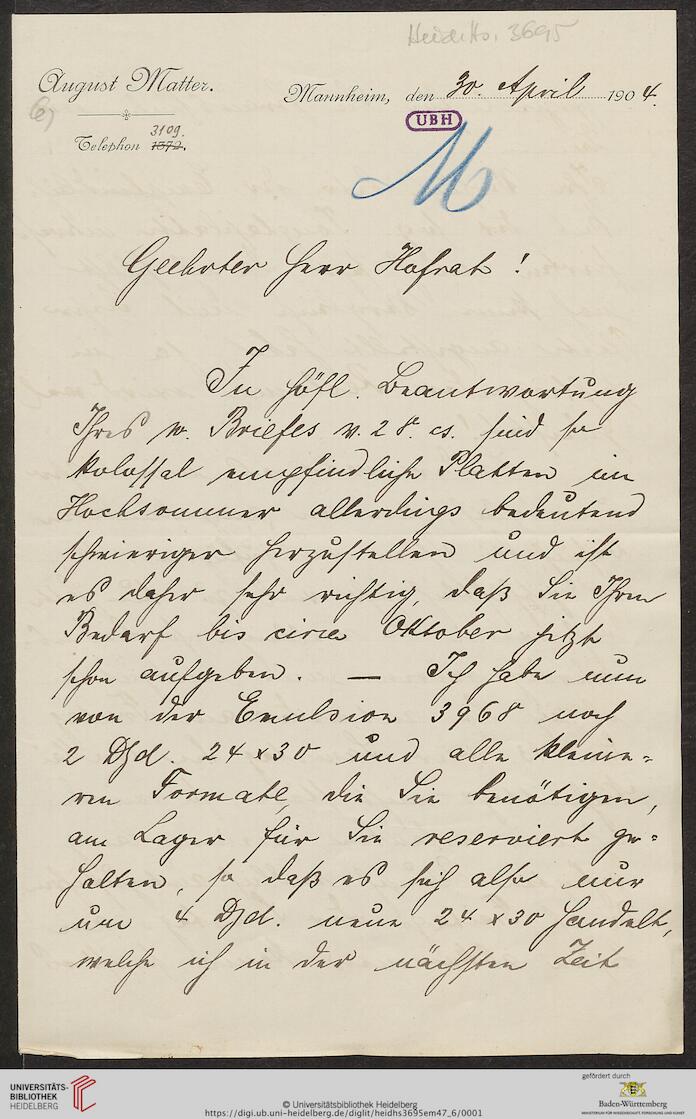 HeidHs. 3695
August Matter.
6)
Mannheim, den 30. April 1904.
UBH
Telephon 1372. 3109.
M
Geehrter Herr Hofrath!
In höfl. Beantwortung
Ihres w. Briefes v. 28. cs. sind so
kolossal empfindliche Platten im
Hochsommer allerdings bedeutend
schwieriger herzustellen und ist
es daher sehr richtig, daß Sie Ihren
Bedarf bis circa Oktober jetzt
schon aufgeben. — Ich habe nun
von der Emulsion 3968 noch
2 Dzd. 24 x 30 und alle kleine-
ren Formate, die Sie benötigen,
am Lager für Sie reserviert ge-
halten, so daß es sich also nur
um 4 Dzd. neue 24 x 30 handelt,
welche ich in der nächsten Zeit
UNIVERSITÄTS-
BIBLIOTHEK
HEIDELBERG
© Universitätsbibliothek Heidelberg
https://digi.ub.uni-heidelberg.de/diglit/heidhs3695em47_6/0001
gefördert durch
Baden-Württemberg
MINISTERIUM FÜR WISSENSCHAFT, FORSCHUNG UND KUNST